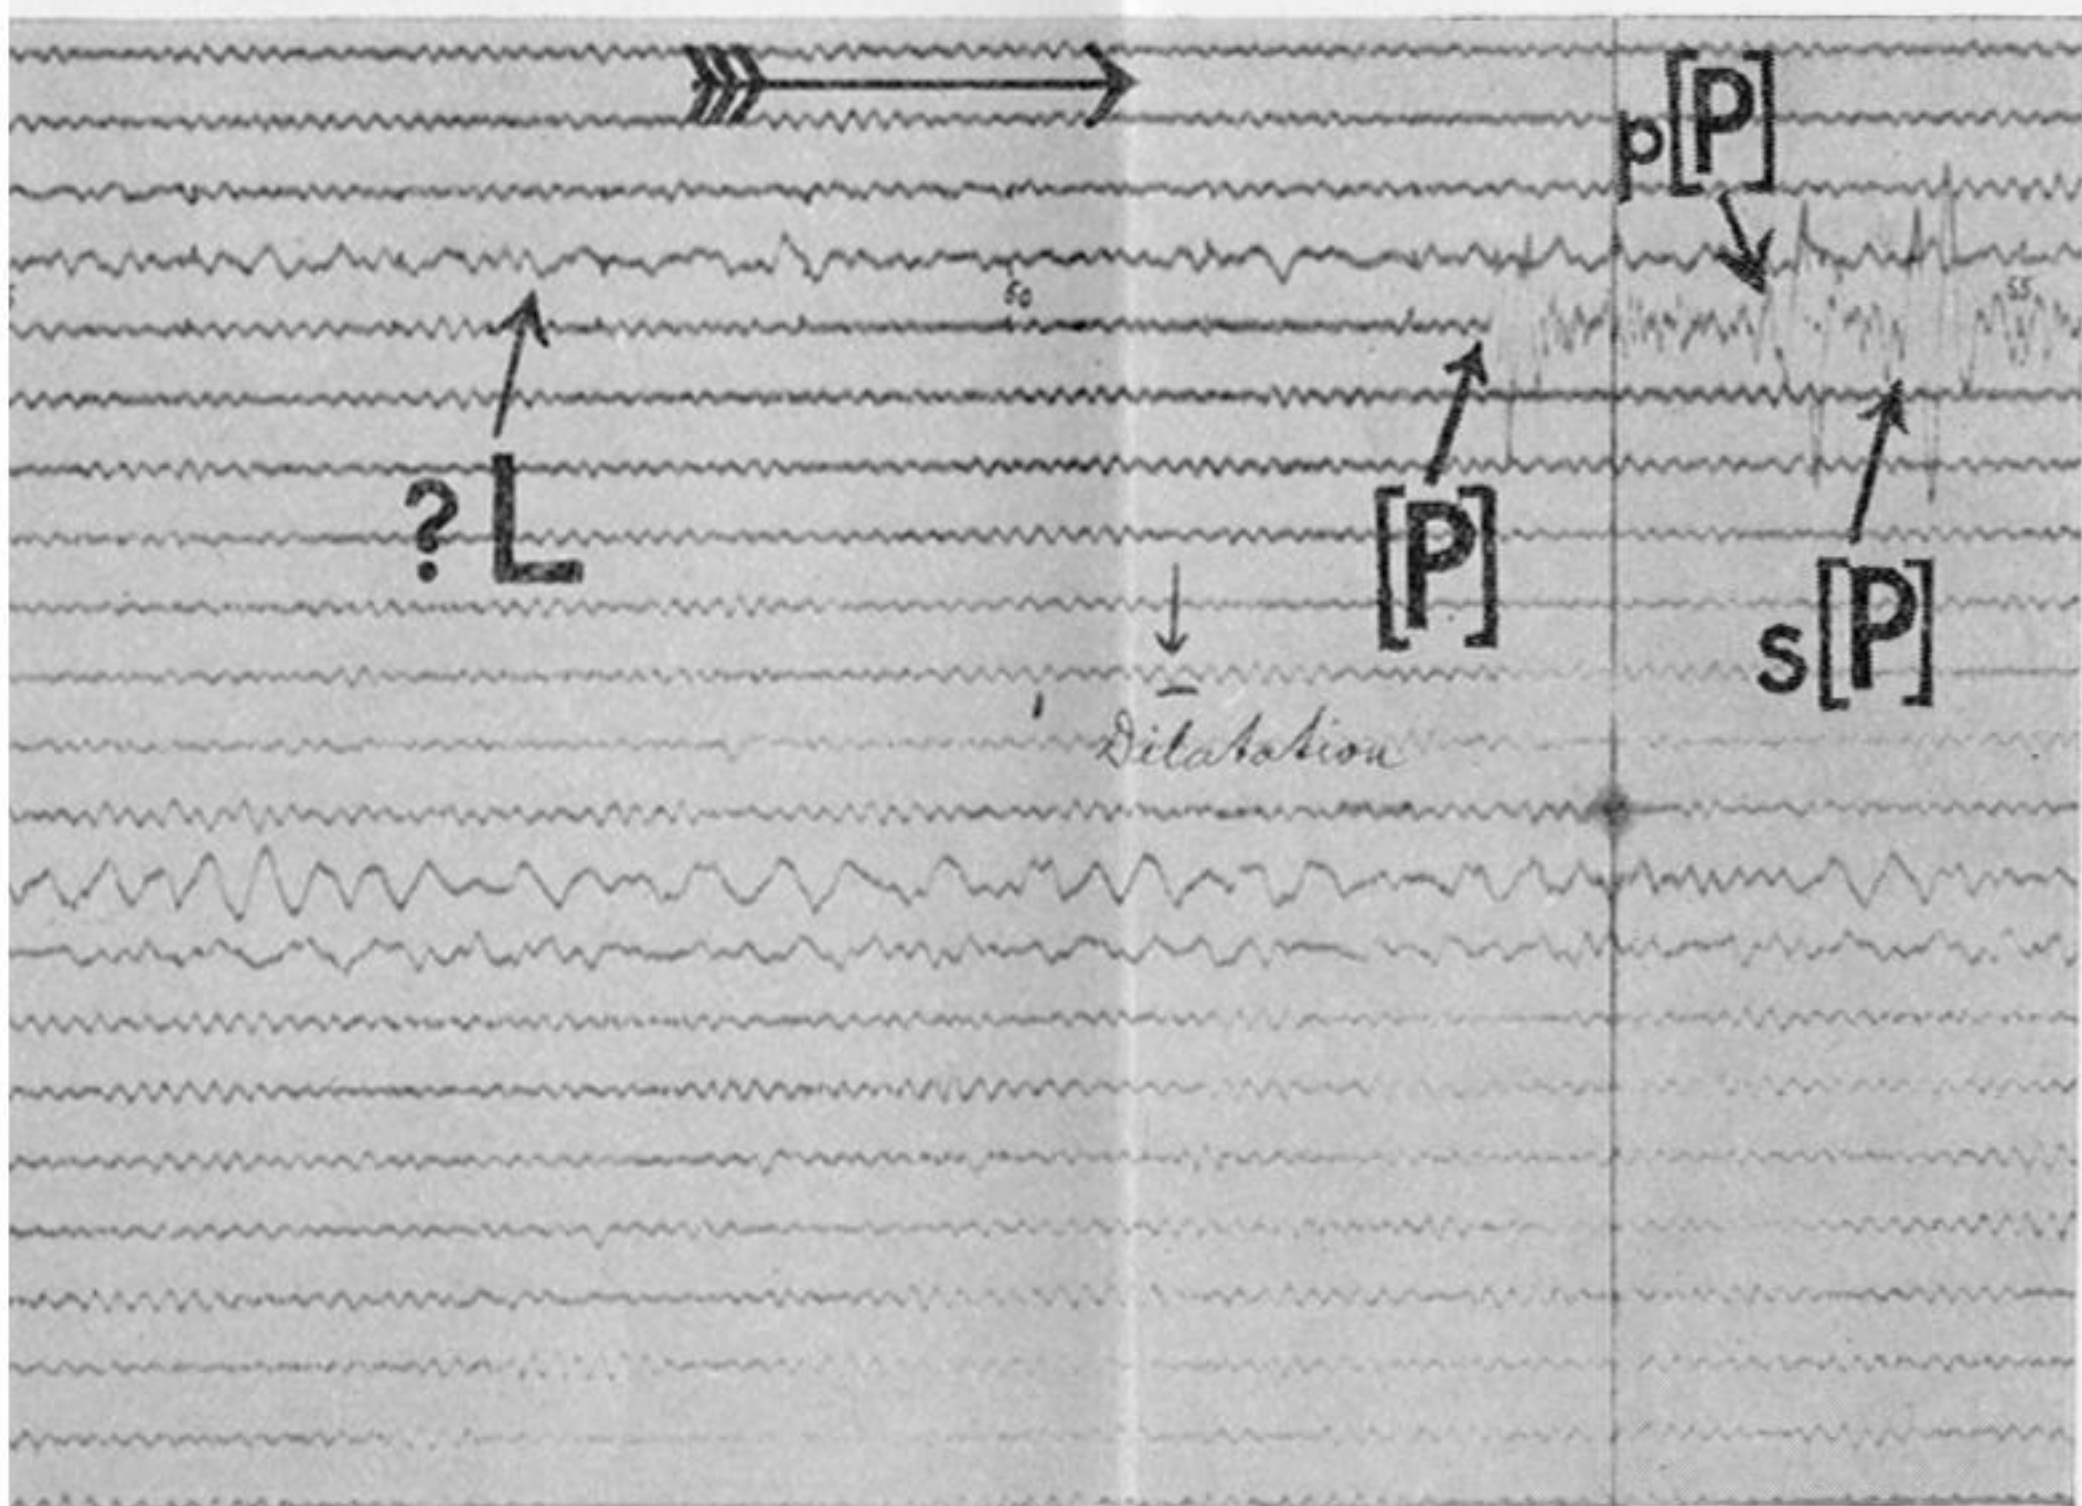 p[P]
60
55
? L
[P]
s[P]
Dilatation